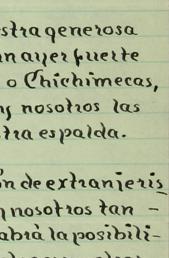 stra generosa
n ayer fuerte
o Chichimecas,
nosotros las
tra espalda.
ón de extranjeris
nosotros tan -
abrá la posibili-